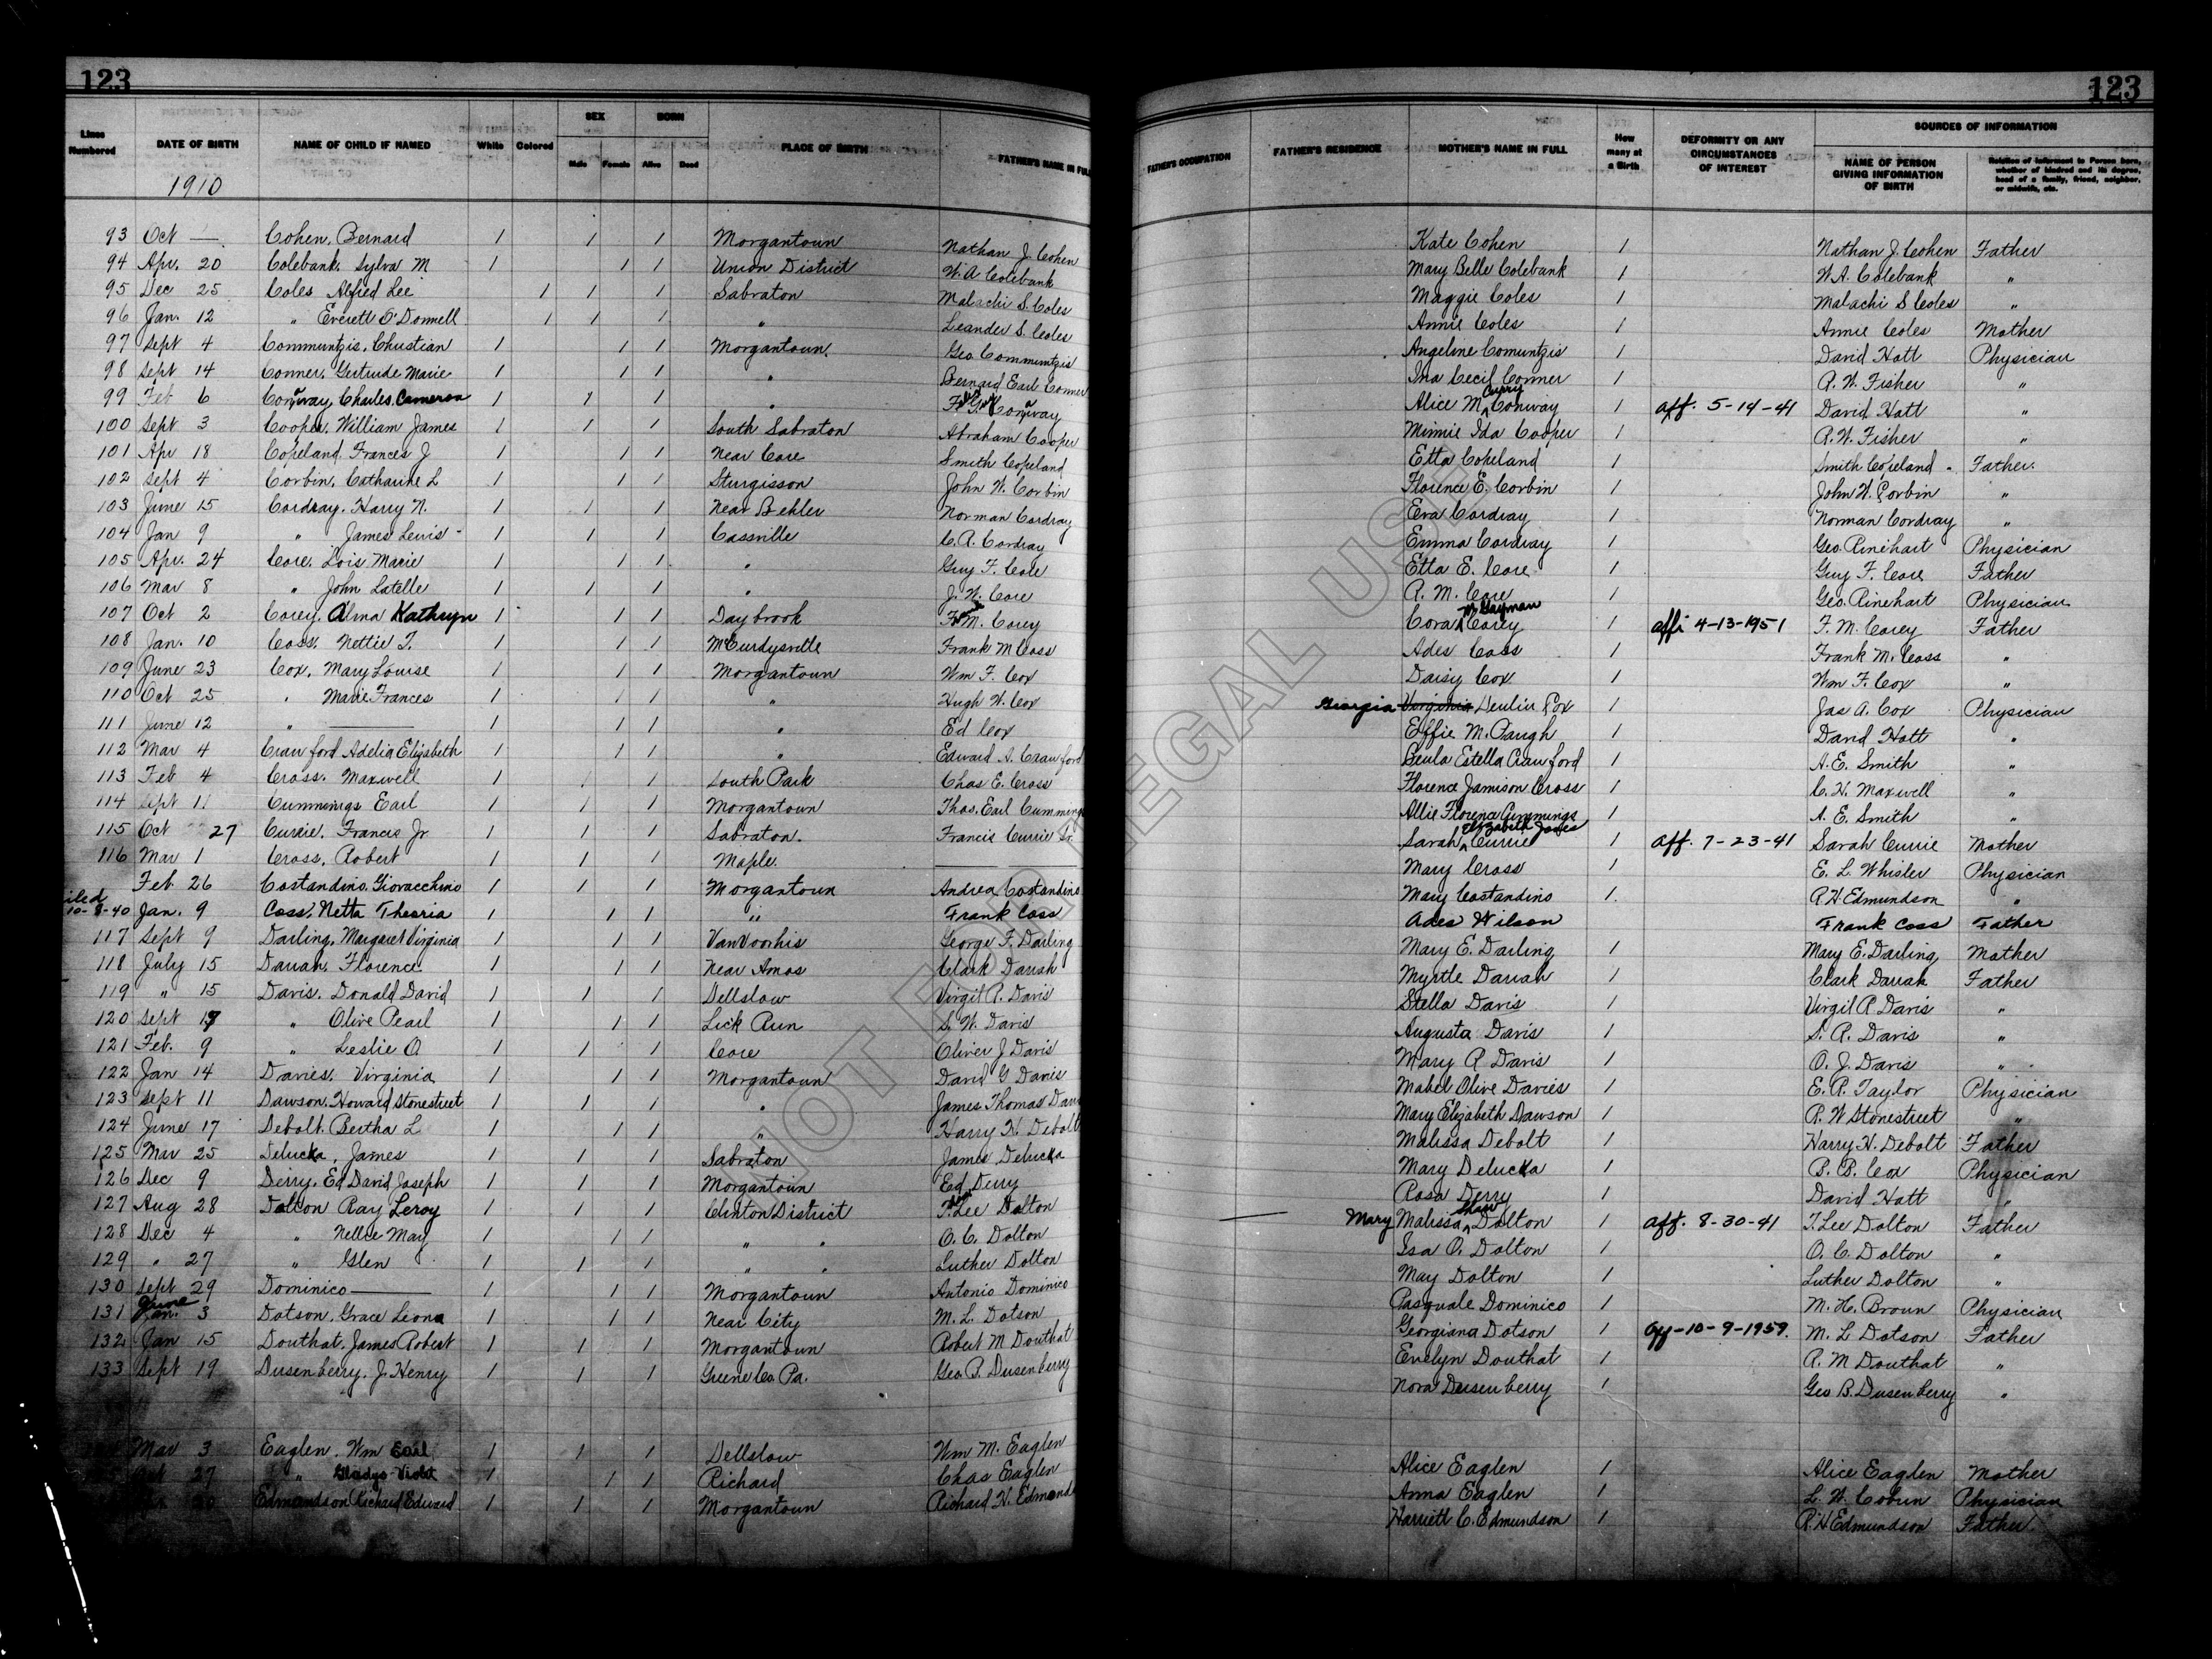 123 123
Lines Numbered DATE OF BIRTH NAME OF CHILD IF NAMED White Colored SEX Male Female BORN Alive Dead PLACE OF BIRTH FATHER'S NAME IN FULL FATHER'S OCCUPATION FATHER'S RESIDENCE MOTHER'S NAME IN FULL How many at a Birth DEFORMITY OR ANY CIRCUMSTANCES OF INTEREST SOURCES OF INFORMATION NAME OF PERSON GIVING INFORMATION OF BIRTH Relation of Informant to Person born, whether of kindred and its degree, head of a family, friend, neighbor, or midwife, etc.
1910
93 Oct — Cohen, Bernard 1 1 1 Morgantown Nathan J. Cohen Kate Cohen 1 Nathan J. Cohen Father
94 Apr. 20 Colebank, Sylva M 1 1 1 Union District W. A Colebank Mary Belle Colebank 1 W. A. Colebank "
95 Dec 25 Coles Alfred Lee 1 1 1 Sabraton Malachi S. Coles Maggie Coles 1 Malachi S Coles "
96 Jan. 12 " Everett O'Donnell 1 1 1 " Leander S. Coles Annie Coles 1 Annie Coles Mother
97 Sept 4 Communtzis, Christian 1 1 1 Morgantown Geo Communtzis Angeline Comuntzis 1 David Hott Physician
98 Sept 14 Conner, Gertrude Marie 1 1 1 " Bernard Earl Conner Ina Cecil Conner 1 R. W. Fisher "
99 Feb 6 Conway, Charles Cameron 1 1 1 " Conway Alice M Curry Conway 1 aff. 5-14-41 David Hott "
100 Sept 3 Cooper, William James 1 1 1 South Sabraton Abraham Cooper Minnie Ida Cooper 1 R. W. Fisher "
101 Apr 18 Copeland, Frances J 1 1 1 Near Core Smith Copeland Etta Copeland 1 Smith Copeland Father
102 Sept 4 Corbin, Catharine L 1 1 1 Sturgisson John W. Corbin Florence E. Corbin 1 John W. Corbin "
103 June 15 Cordray, Harry N. 1 1 1 Near Behler Norman Cordray Eva Cordray 1 Norman Cordray "
104 Jan 9 " James Lewis 1 1 1 Cassville C. A. Cordray Emma Cordray 1 Geo. Rinehart Physician
105 Apr. 24 Core, Lois Marie 1 1 1 " Guy F. Core Etta E. Core 1 Guy F. Core Father
106 Mar 8 " John Latelle 1 1 1 " J. W. Core A. M. Core 1 Geo. Rinehart Physician
107 Oct 2 Corey, Alma Kathryn 1 1 1 Daybrook M. Corey Cora Corey 1 affi 4-13-1951 F. M. Corey Father
108 Jan. 10 Coss, Nettie T. 1 1 1 McCurdysville Frank M Coss Ades Coss 1 Frank M. Coss "
109 June 23 Cox, Mary Louise 1 1 1 Morgantown Wm F. Cox Daisy Cox 1 Wm F. Cox "
110 Oct 25 " Marie Frances 1 1 1 " Hugh W. Cox Georgia Virginia Deulin Cox 1 Jas A. Cox Physician
111 June 12 " — 1 1 1 " Ed Cox Effie M. Paugh 1 David Hott "
112 Mar 4 Crawford Adelia Elizabeth 1 1 1 " Edward A. Crawford Beula Estella Crawford 1 A. E. Smith "
113 Feb 4 Cross, Maxwell 1 1 1 South Park Chas E. Cross Florence Jamison Cross 1 C. H. Maxwell "
114 Sept 11 Cummings Earl 1 1 1 Morgantown Thos. Earl Cummings Allie Florence Cummings 1 A. E. Smith "
115 Oct 27 Currie, Francis Jr 1 1 1 Sabraton Francis Currie Sr. Sarah Elizabeth Jones Currie 1 aff. 7-23-41 Sarah Currie Mother
116 Mar 1 Cross, Robert 1 1 1 Maple — Mary Cross 1 E. L. Whisler Physician
Feb 26 Costandino, Giovacchino 1 1 1 Morgantown Andrea Costandino Mary Costandino 1 R. H. Edmundson "
10-8-40 Jan. 9 Coss, Netta Theoria 1 1 1 " Frank Coss Ades Wilson Frank Coss Father
117 Sept 9 Darling, Margaret Virginia 1 1 1 Van Voorhis George F. Darling Mary E. Darling 1 Mary E. Darling Mother
118 July 15 Darrah, Florence 1 1 1 Near Amos Clark Darrah Myrtle Darrah 1 Clark Darrah Father
119 " 15 Davis, Donald David 1 1 1 Dellslow Virgil R. Davis Stella Davis 1 Virgil R Davis "
120 Sept " Olive Pearl 1 1 1 Lick Run S. W. Davis Augusta Davis 1 S. R. Davis "
121 Feb. 9 " Leslie O 1 1 1 Core Oliver J Davis Mary R Davis 1 O. J. Davis "
122 Jan 14 Davies, Virginia 1 1 1 Morgantown David G Davies Mabel Olive Davies 1 E. R. Taylor Physician
123 Sept 11 Dawson, Howard Stonestreet 1 1 1 " James Thomas Daw Mary Elizabeth Dawson 1 R. W Stonestreet "
124 June 17 Debolt, Bertha L 1 1 1 " Harry H. Debolt Malissa Debolt 1 Harry H. Debolt Father
125 Mar 25 Delucka, James 1 1 1 Sabraton James Delucka Mary Delucka 1 B. B. Cox Physician
126 Dec 9 Derry, Ed David Joseph 1 1 1 Morgantown Ed Derry Rosa Derry 1 David Hott "
127 Aug 28 Dalton Ray Leroy 1 1 1 Clinton District Lee Dalton Mary Malissa Shaw Dalton 1 aff. 8-30-41 T. Lee Dalton Father
128 Dec 4 " Nellie May 1 1 1 " " O. C. Dalton Isa O. Dalton 1 O. C. Dolton "
129 " 27 " Glen 1 1 1 " " Luther Dolton May Dolton 1 Luther Dolton "
130 Sept 29 Dominico — 1 1 1 Morgantown Antonio Dominico Pasquale Dominico 1 M. H. Brown Physician
131 June Jan. 3 Dotson, Grace Leona 1 1 1 Near City M. L. Dotson Georgiana Dotson 1 aff-10-9-1959. M. L Dotson Father
132 Jan 15 Douthat, James Robert 1 1 1 Morgantown Robert M Douthat Evelyn Douthat 1 R. M Douthat "
133 Sept 19 Dusenberry, J. Henry 1 1 1 Greene Co. Pa. Geo. B. Dusenberry Nora Dusenberry 1 Geo B. Dusenberry "
Mar 3 Eaglen, Wm Earl 1 1 1 Dellslow Wm M. Eaglen Alice Eaglen 1 Alice Eaglen Mother
Oct 27 " Gladys Violet 1 1 1 Richard Chas Eaglen Anna Eaglen 1 L. W. Cobun Physician
Edmondson Richard Edward 1 1 1 Morgantown Richard H. Edmond Harriett C. Edmundson 1 R. H Edmundson Father
NOT FOR LEGAL USE